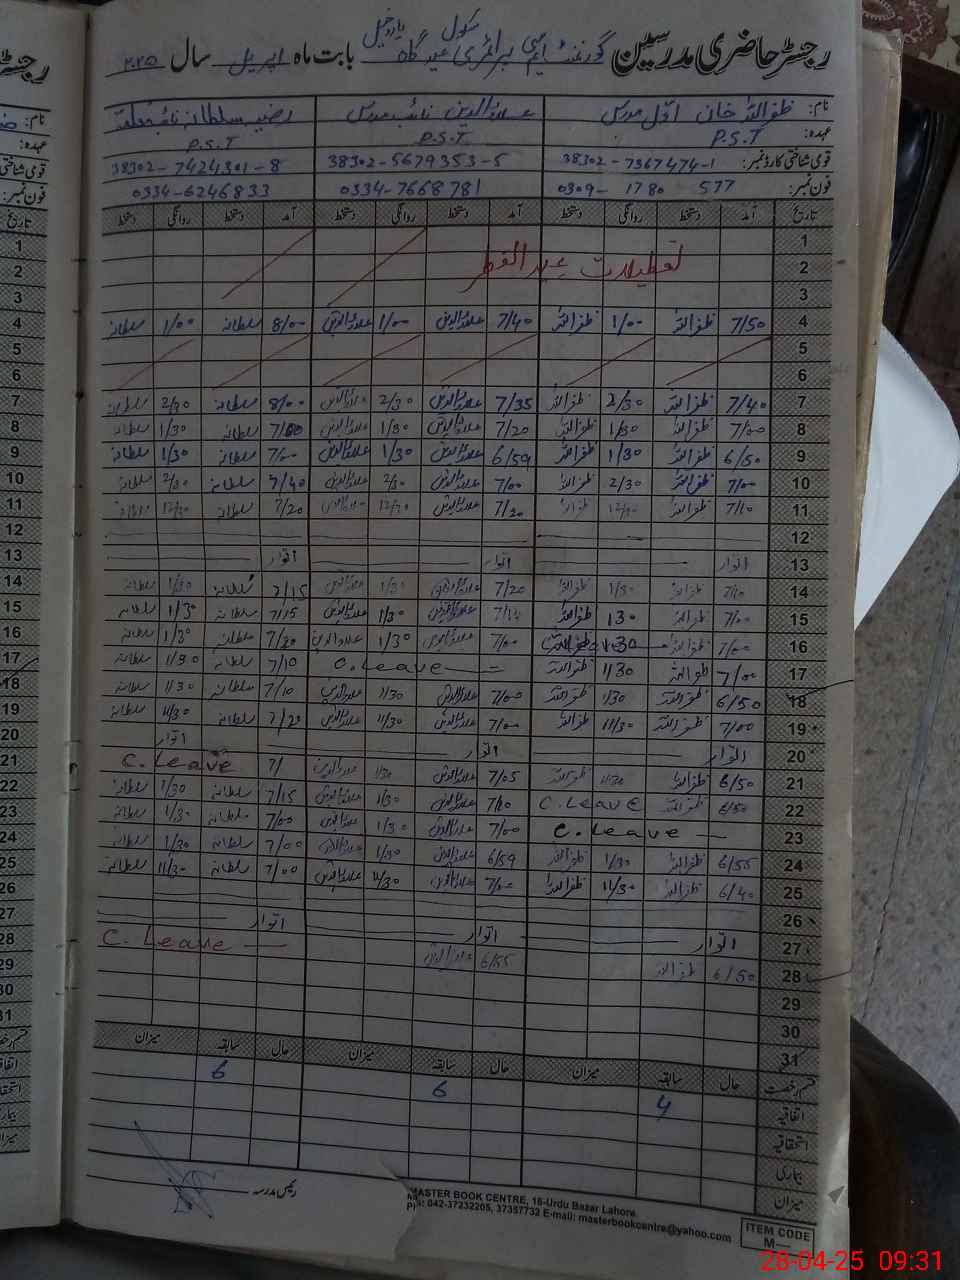 رجسٹر حاضری مدرسین گورنمنٹ ایم سی پرائمری سکول عید گاہ بابت ماہ اپریل سال ۲۰۲۵
نام: ظفر اللہ خان اول مدرس علاؤالدین نائب مدرس رضیہ سلطانہ نائب معلمہ
عہدہ: P.S.T P.S.T P.S.T
قومی شناختی کارڈ نمبر: 38302-7367474-1 38302-5679353-5 38302-7424301-8
فون نمبر: 0309-1780 577 0334-7668781 0334-6246833
تاریخ آمد دستخط روانگی دستخط آمد دستخط روانگی دستخط آمد دستخط روانگی دستخط
1
2 تعطیلات عید الفطر
3
4 7/50 ظفر اللہ 1/00 ظفر اللہ 7/40 علاؤالدین 1/00 علاؤالدین 8/00 سلطانہ 1/00 سلطانہ
5
6
7 7/40 ظفر اللہ 2/30 ظفر اللہ 7/35 علاؤالدین 2/30 علاؤالدین 8/00 سلطانہ 2/30 سلطانہ
8 7/00 ظفر اللہ 1/30 ظفر اللہ 7/20 علاؤالدین 1/30 علاؤالدین سلطانہ 1/30 سلطانہ
9 6/50 ظفر اللہ 1/30 ظفر اللہ 6/59 علاؤالدین 1/30 علاؤالدین 7/00 سلطانہ 1/30 سلطانہ
10 7/00 ظفر اللہ 2/30 ظفر اللہ 7/00 علاؤالدین 2/30 علاؤالدین 7/40 سلطانہ 2/30 سلطانہ
11 7/10 ظفر اللہ 12/00 ظفر اللہ 7/20 علاؤالدین 12/30 علاؤالدین 7/20 سلطانہ 12/30 سلطانہ
12
13 اتوار اتوار اتوار
14 7/10 ظفر اللہ 1/30 ظفر اللہ 7/20 علاؤالدین 1/30 علاؤالدین 7/15 سلطانہ 1/30 سلطانہ
15 7/00 ظفر اللہ 130 ظفر اللہ علاؤالدین 1/30 علاؤالدین 7/15 سلطانہ 1/30 سلطانہ
16 7/00 ظفر اللہ 1/30 ظفر اللہ 7/00 علاؤالدین 1/30 علاؤالدین 7/20 سلطانہ 1/30 سلطانہ
17 7/00 ظفر اللہ 1/30 ظفر اللہ C. Leave 7/10 سلطانہ 1/30 سلطانہ
18 6/50 ظفر اللہ 11/30 ظفر اللہ 7/00 علاؤالدین 11/30 علاؤالدین 7/10 سلطانہ 11/30 سلطانہ
19 7/00 ظفر اللہ 11/30 ظفر اللہ 7/00 علاؤالدین 11/30 علاؤالدین 7/20 سلطانہ 11/30 سلطانہ
20 اتوار اتوار اتوار
21 6/50 ظفر اللہ 1/30 ظفر اللہ 7/05 علاؤالدین 1/30 علاؤالدین 7/ C. Leave
22 6/50 ظفر اللہ C. Leave 7/10 علاؤالدین 1/30 علاؤالدین 7/15 سلطانہ 1/30 سلطانہ
23 C. Leave 7/00 علاؤالدین 1/30 علاؤالدین 7/00 سلطانہ 1/30 سلطانہ
24 6/55 ظفر اللہ 1/30 ظفر اللہ 6/59 علاؤالدین 1/30 علاؤالدین 7/00 سلطانہ 1/30 سلطانہ
25 6/40 ظفر اللہ 11/30 ظفر اللہ 7/00 علاؤالدین 11/30 علاؤالدین 7/00 سلطانہ 11/30 سلطانہ
26
27 اتوار اتوار اتوار
28 6/50 ظفر اللہ 6/55 علاؤالدین C. Leave
29
30
31
قسم رخصت حال سابقہ میزان حال سابقہ میزان حال سابقہ میزان
اتفاقیہ 4 6 6
استحقاقیہ
بیماری
میزان
رئیس مدرسہ
MASTER BOOK CENTRE, 16-Urdu Bazar Lahore.
PH: 042-37232205, 37357732 E-mail: masterbookcentre@yahoo.com
ITEM CODE
M—
28-04-25 09:31